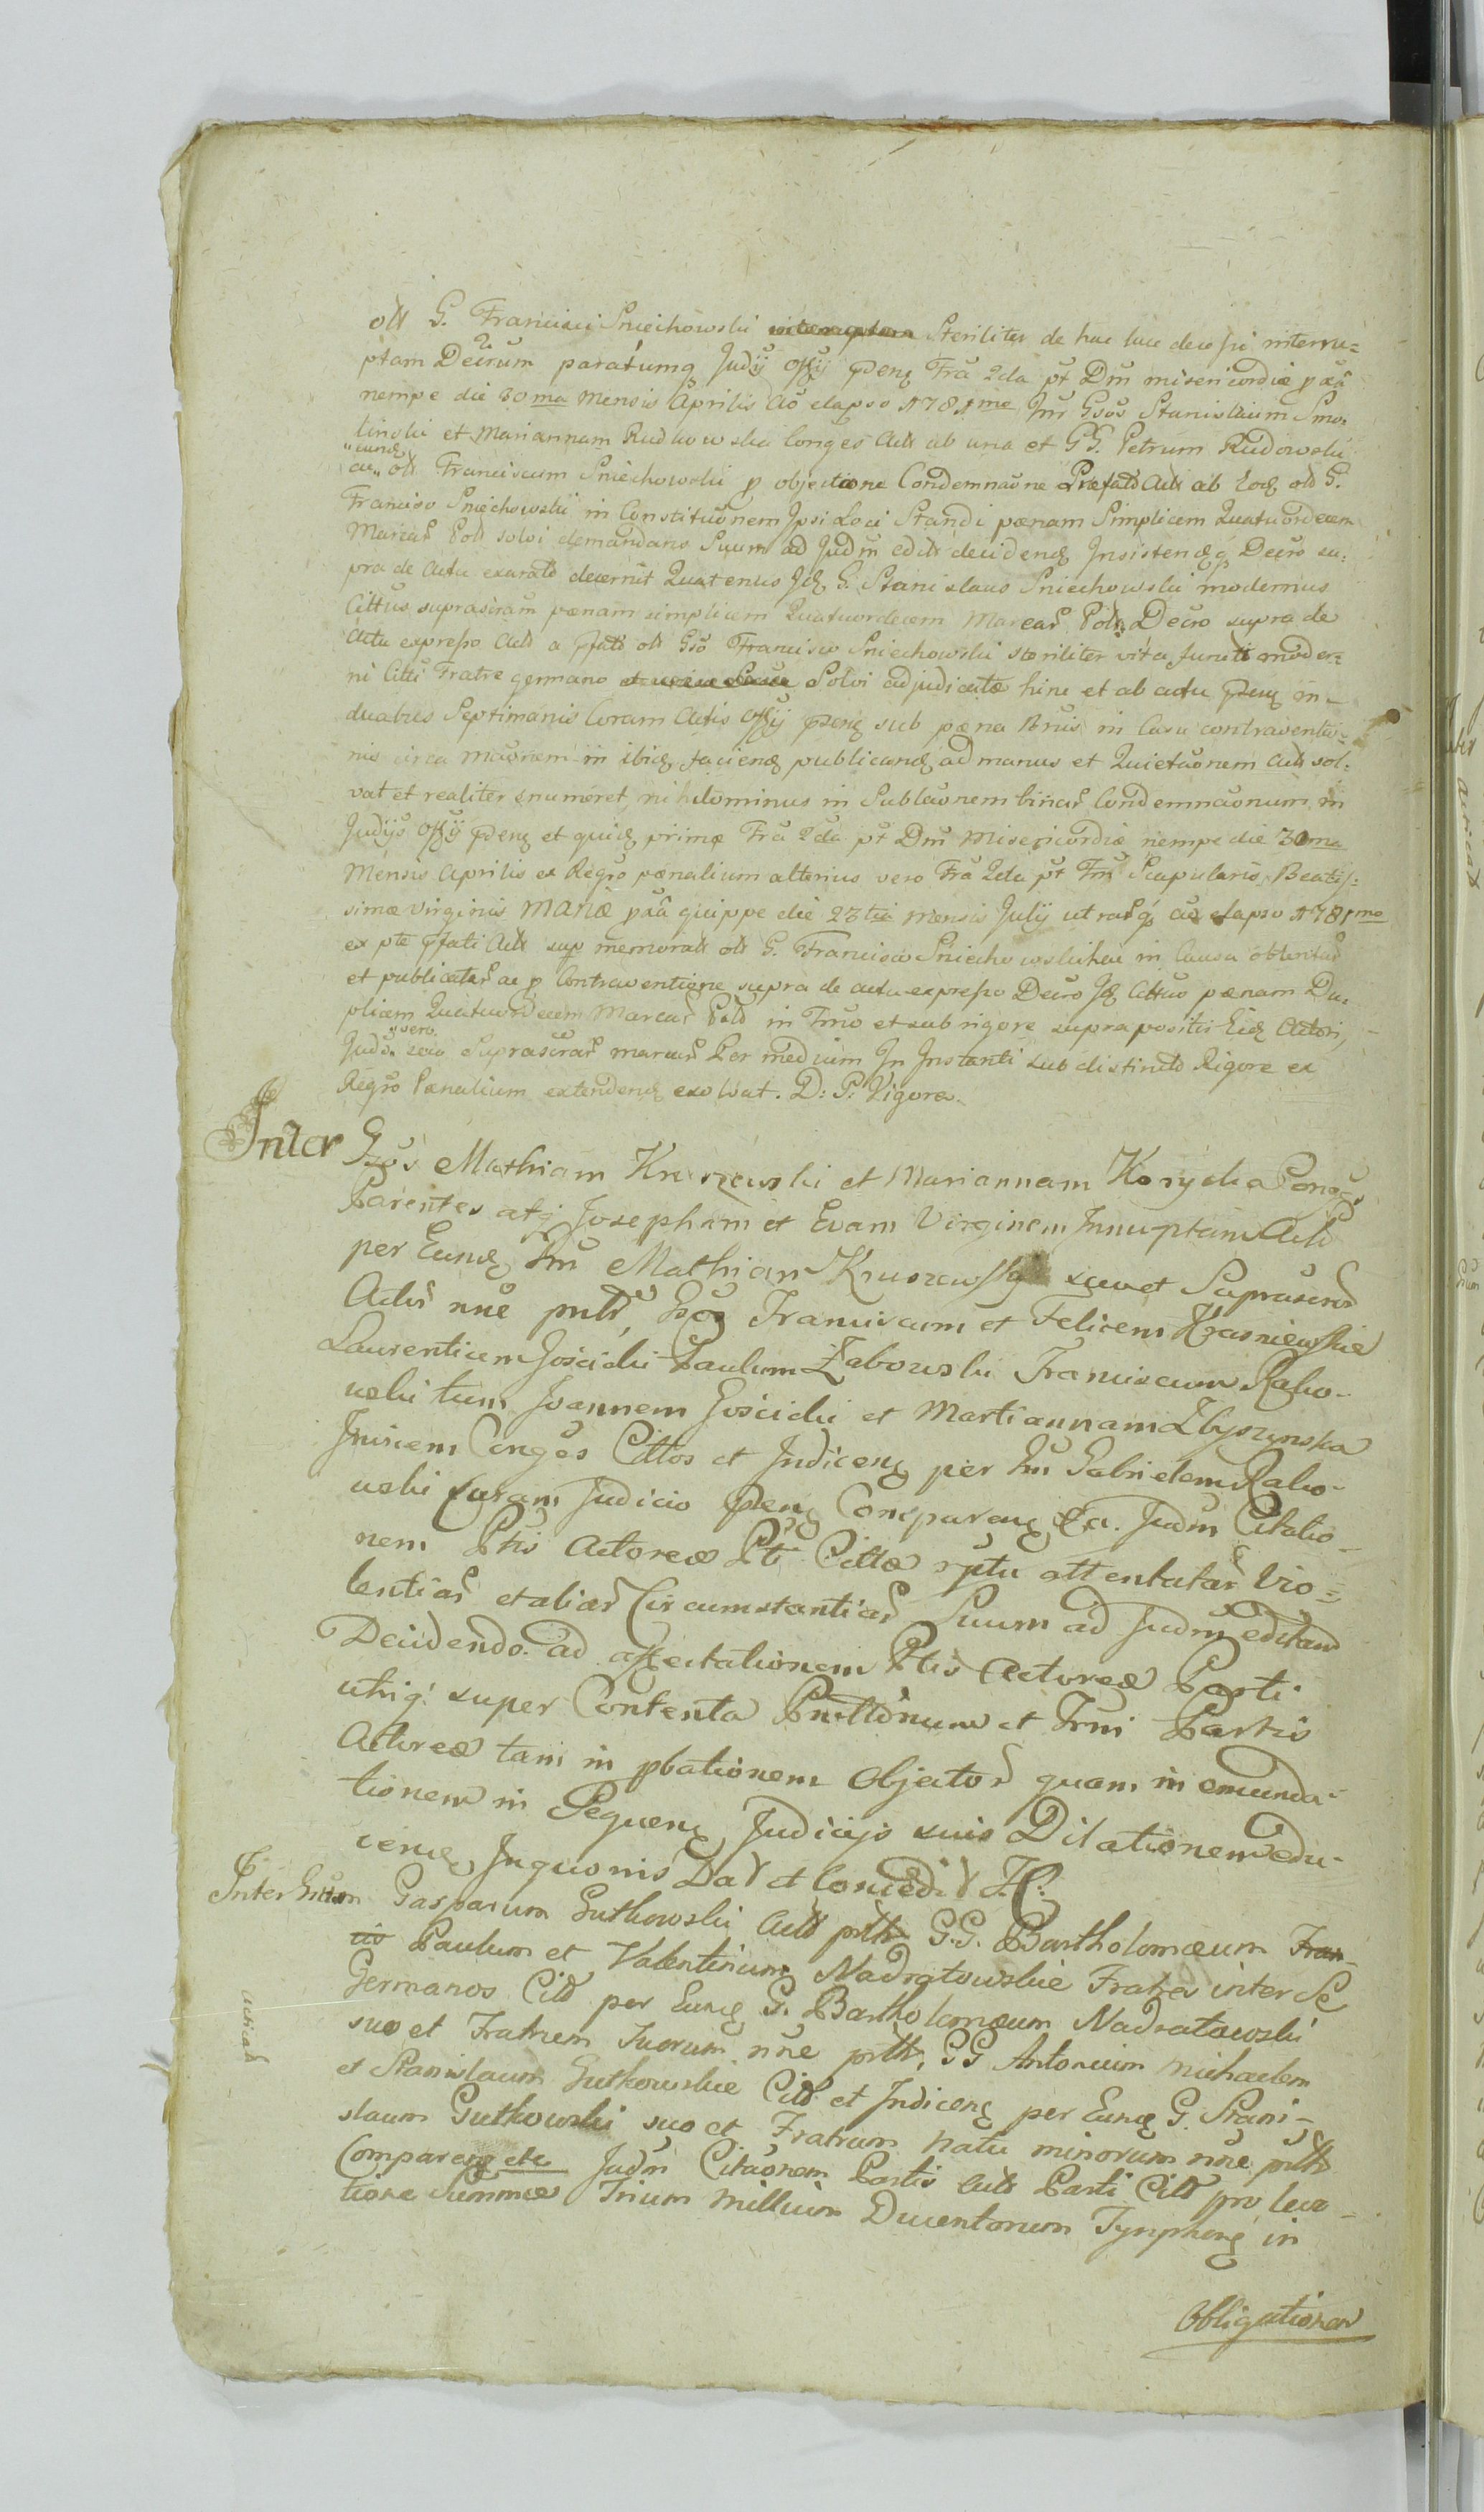 olt G. Francisci Sniechowski Steriliter de hac luce decessi interru=
ptam Decrum paratumq Judij Offij Fra 2da pt Dm misericordiæ pxa
nempe die 30ma Mensis Aprilis Ao elapso 1781mo Inr Gsos Stanislaum Smo-
linski et Mariannam Rudkowska Conges Act ab una et GG. Petrum Rudowski
ac olt Franciscum Sniechowski p objectione Condemnaone Præfato Act ab Eoq olt G.
Francisco Sniechowski in Constituonem Ipsi Loci Standi pænam Simplicem Quatuordecem
Marcar Pol solvi demandans Suum ad Judm edit decidenq Insistenq Decro su-
pra de Actu exarato decernit Quatenus Idq G. Stanislaus Sniechowski modernus
Cittus suprascram pænam simplicem Quatuordecem Marcar Pol Decro supra de
Actu expresso Act a pfato olt Gso Francisco Sniechowski steriliter vita functi moder=
ni Citti Fratre germano Solvi adjudicatæ hinc et ab actu in
duabus Septimanis Coram Actis Offij sub pæna Bnis in Casu contraventio-
nis circa maonem in ibiq facienq publicanq ad manus et Quietaonem Act sol=
vat et realiter enumeret, nihilominus in Sublaonem binar Condemnaonum in
Judijs Offij et quidq primæ Fra 2da pt Dm Misericordiæ nempe die 30ma
Mensis Aprilis ex Regro pænalium alterius vero Fra 2da pt Fm Scapularis Beatis=
simæ Virginis Mariæ pxa quippe die 23tia mensis July utrarq ao elapso 1781mo
ex pte pfati Act sup memorati olt G. Francisco Sniechowski hac in Causa obtentar
et publicatar ac p Contraventione supra de actu expresso Decro Idq Cittus pænam Du-
plicem Quatuordecem Marcar Pol in Fmo et sub rigore supra positis Eidq Actori,
Judo vero Suprascrar marcar Per medium In Instanti sub distincto Rigore ex
Regro Pænalium extendenq exolvat. D: P: Vigore.
Inter Gsos Mathiam Kruszewski et Mariannam Korycka Conges
Parentes atq Josepham et Evam Virginem Innuptam Act
per Eunq Gm Mathiam Kruszewski suo et Suprascrar
Actor nne pntt, Gsos Franciscum et Felicem Krasniewskie
Laurentium Joscicki Paulum Zabowski Franciscum Rako-
wski tum Joannem Goscicki et Martiannam Zbyszynska
Invicem Conges Cittos et Indicenq per Gm Gabrielem Rako-
wski Coram Judicio Comparenq Judm Citatio-
nem Ptis Actoreæ Pti Cittæ rptu attentatar Vio=
lentiar et aliar Circumstantiar Suum ad Judm editam
Decidendo ad affectationem Ptis Actoreæ Parti
utriq super Contenta et Partis
Actoreæ tam in pbationem Objector quam in emunda-
tionem in Sequenq Judicijs suis Dilationem edu-
cenq Inquonis Dat et Concedit
Inter Gasparum Gutkowski Act pntt G.G. Bartholomæum Fran-
Paulum et Valentinum Nadratowskie Fratres inter Se
Germanos Citt per Eunq G. Bartholomæum Nadratowski
suo et Fratrem Suorum nne pntt, GG Antonium Michaelem
et Stanislaum Gutkowskie Citt et Indicenq per Eunq G. Stani-
slaum Gutkowski suo et Fratrum natu minorum nne pntt
Comparenq etc Judm Citaonem Partis Act Parti Citt pro leva-
tione Summæ Trium Millium Ducentorum Tynphonq in
Obligationem